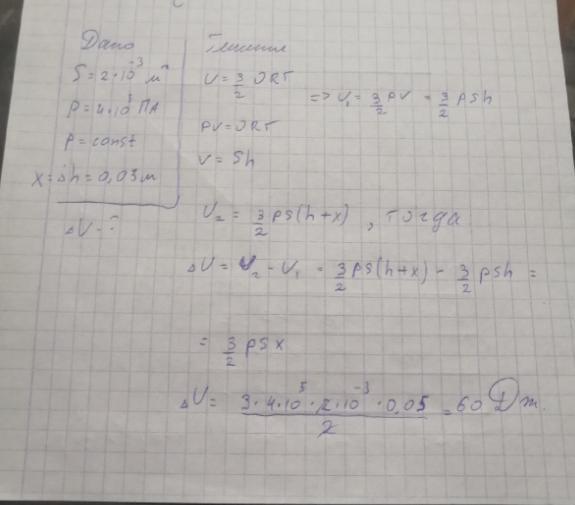 Дано
S = 2·10⁻³ м²
P = 4·10⁵ ПА
P = const
x = Δh = 0,05 м
ΔU - ?
Решение
U = 3/2 νRT
PV = νRT
V = Sh
=> U₁ = 3/2 PV = 3/2 PSh
U₂ = 3/2 PS(h+x) , тогда
ΔU = U₂ - U₁ = 3/2 PS(h+x) - 3/2 PSh =
= 3/2 PSx
ΔU = 3·4·10⁵·2·10⁻³·0,05 / 2 = 60 Дж.